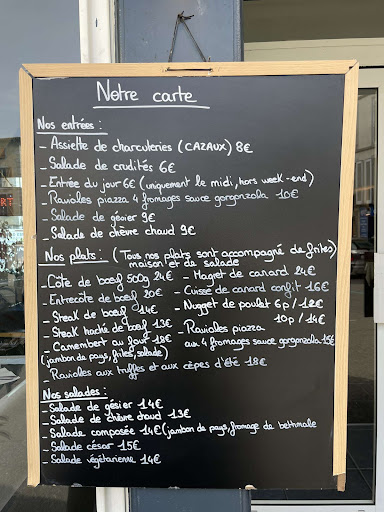 Notre carte
Nos entrées :
- Assiette de charcuteries (CAZAUX) 8€
- Salade de crudités 6€
- Entrée du jour 6€ (uniquement le midi, hors week-end)
- Ravioles piazza 4 fromages sauce gorgonzola 10€
- Salade de gésier 9€
- Salade de chèvre chaud 9€
Nos plats : (Tous nos plats sont accompagné de frites)
maison et de salade
- Côte de boeuf 500g 24€
- Entrecote de boeuf 20€
- Steak de boeuf 14€
- Steak haché de boeuf 13€
- Camembert au four 18€
(jambon de pays, frites, salade)
- Ravioles aux truffes et aux cèpes d'été 18€
- Magret de canard 24€
- Cuisse de canard confit 16€
- Nugget de poulet 6p / 12€
10p / 14€
- Ravioles piazza
aux 4 fromages sauce gorgonzola 15€
Nos salades :
- Salade de gésier 14€
- Salade de chèvre chaud 13€
- Salade composée 14€ (jambon de pays, fromage de bethmale
- Salade césar 15€
- Salade végétarienne 14€